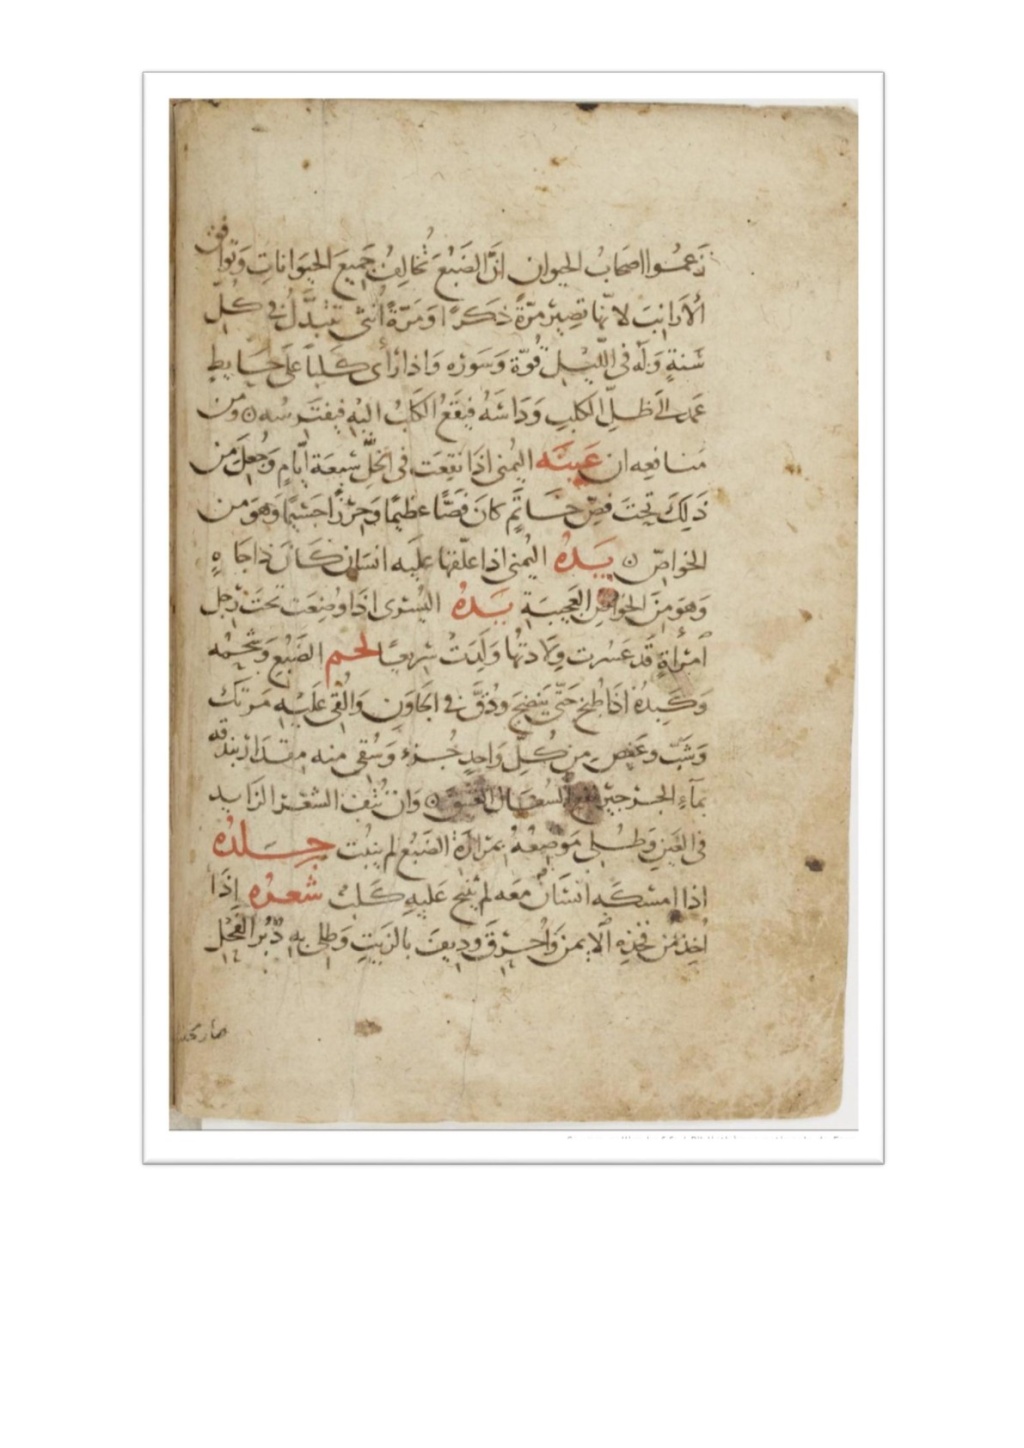 زعموا اصحاب الحيوان انَّ الضَبُعَ تُخالِفُ جَميعَ الحيَوانات وَتوافق
الأرانبَ لانّها تصِيرُ مَرّةً ذَكرًا وَمَرّةً أُنثى تتبدَّلُ في كلّ
سَنةٍ وَله في اللّيل قُوّة وَسَوره وَاذا رَأى كلبًا عَلى حايطٍ
عمد الى ظلّ الكلبِ وَدَاسَهُ فيقَعُ الكلبُ اليهِ فيفترسه ومن
منافعِه ان عَينَه اليمنى اذا نقِعَت في الخلّ سبعَة ايّامٍ وَجُعِلَ من
ذَلِكَ تحتَ فصّ خاتَمٍ كانَ فصًّا عظيمًا وَحِرْزًا وَهوَ من
الخواصّ يَدهُ اليُمنى اذا علّقها عليه انسان كانَ ذا جاهٍ
وَهوَ مِنَ الخواصّ العَجيبَة يَدهُ اليُسرى اذا وضِعَت تحتَ رجل
امرأةٍ قد عَسُرت وِلادتُها وَلَدَت سَريعًا لحم الضَبُع وَشحمُه
وَكبِدُهُ اذا طُبخ حَتّى يَنضجَ وَدُقَّ في الهاوَن وَالقي عَليْه مَرتَك
وَشَبّ وعَفص من كلّ واحدٍ جُزء وَسُقي منه مقدار بندقه
بمآءِ الجرجير السعال وَان نُتِفَ الشعَر الزايد
في العَين وَطُلي مَوضِعهُ بمرارَة الضَبُع لم ينبُت جِلدُه
اذا امسَكَه انسَانٌ معَه لم يَنبح عَليهِ كَلبٌ شعرُه اذا
اُخِذ من فخذِه الايمن وَاُحرقَ ودِيفَ بالزَيتِ وَطلي بِه دُبر الفَحْل